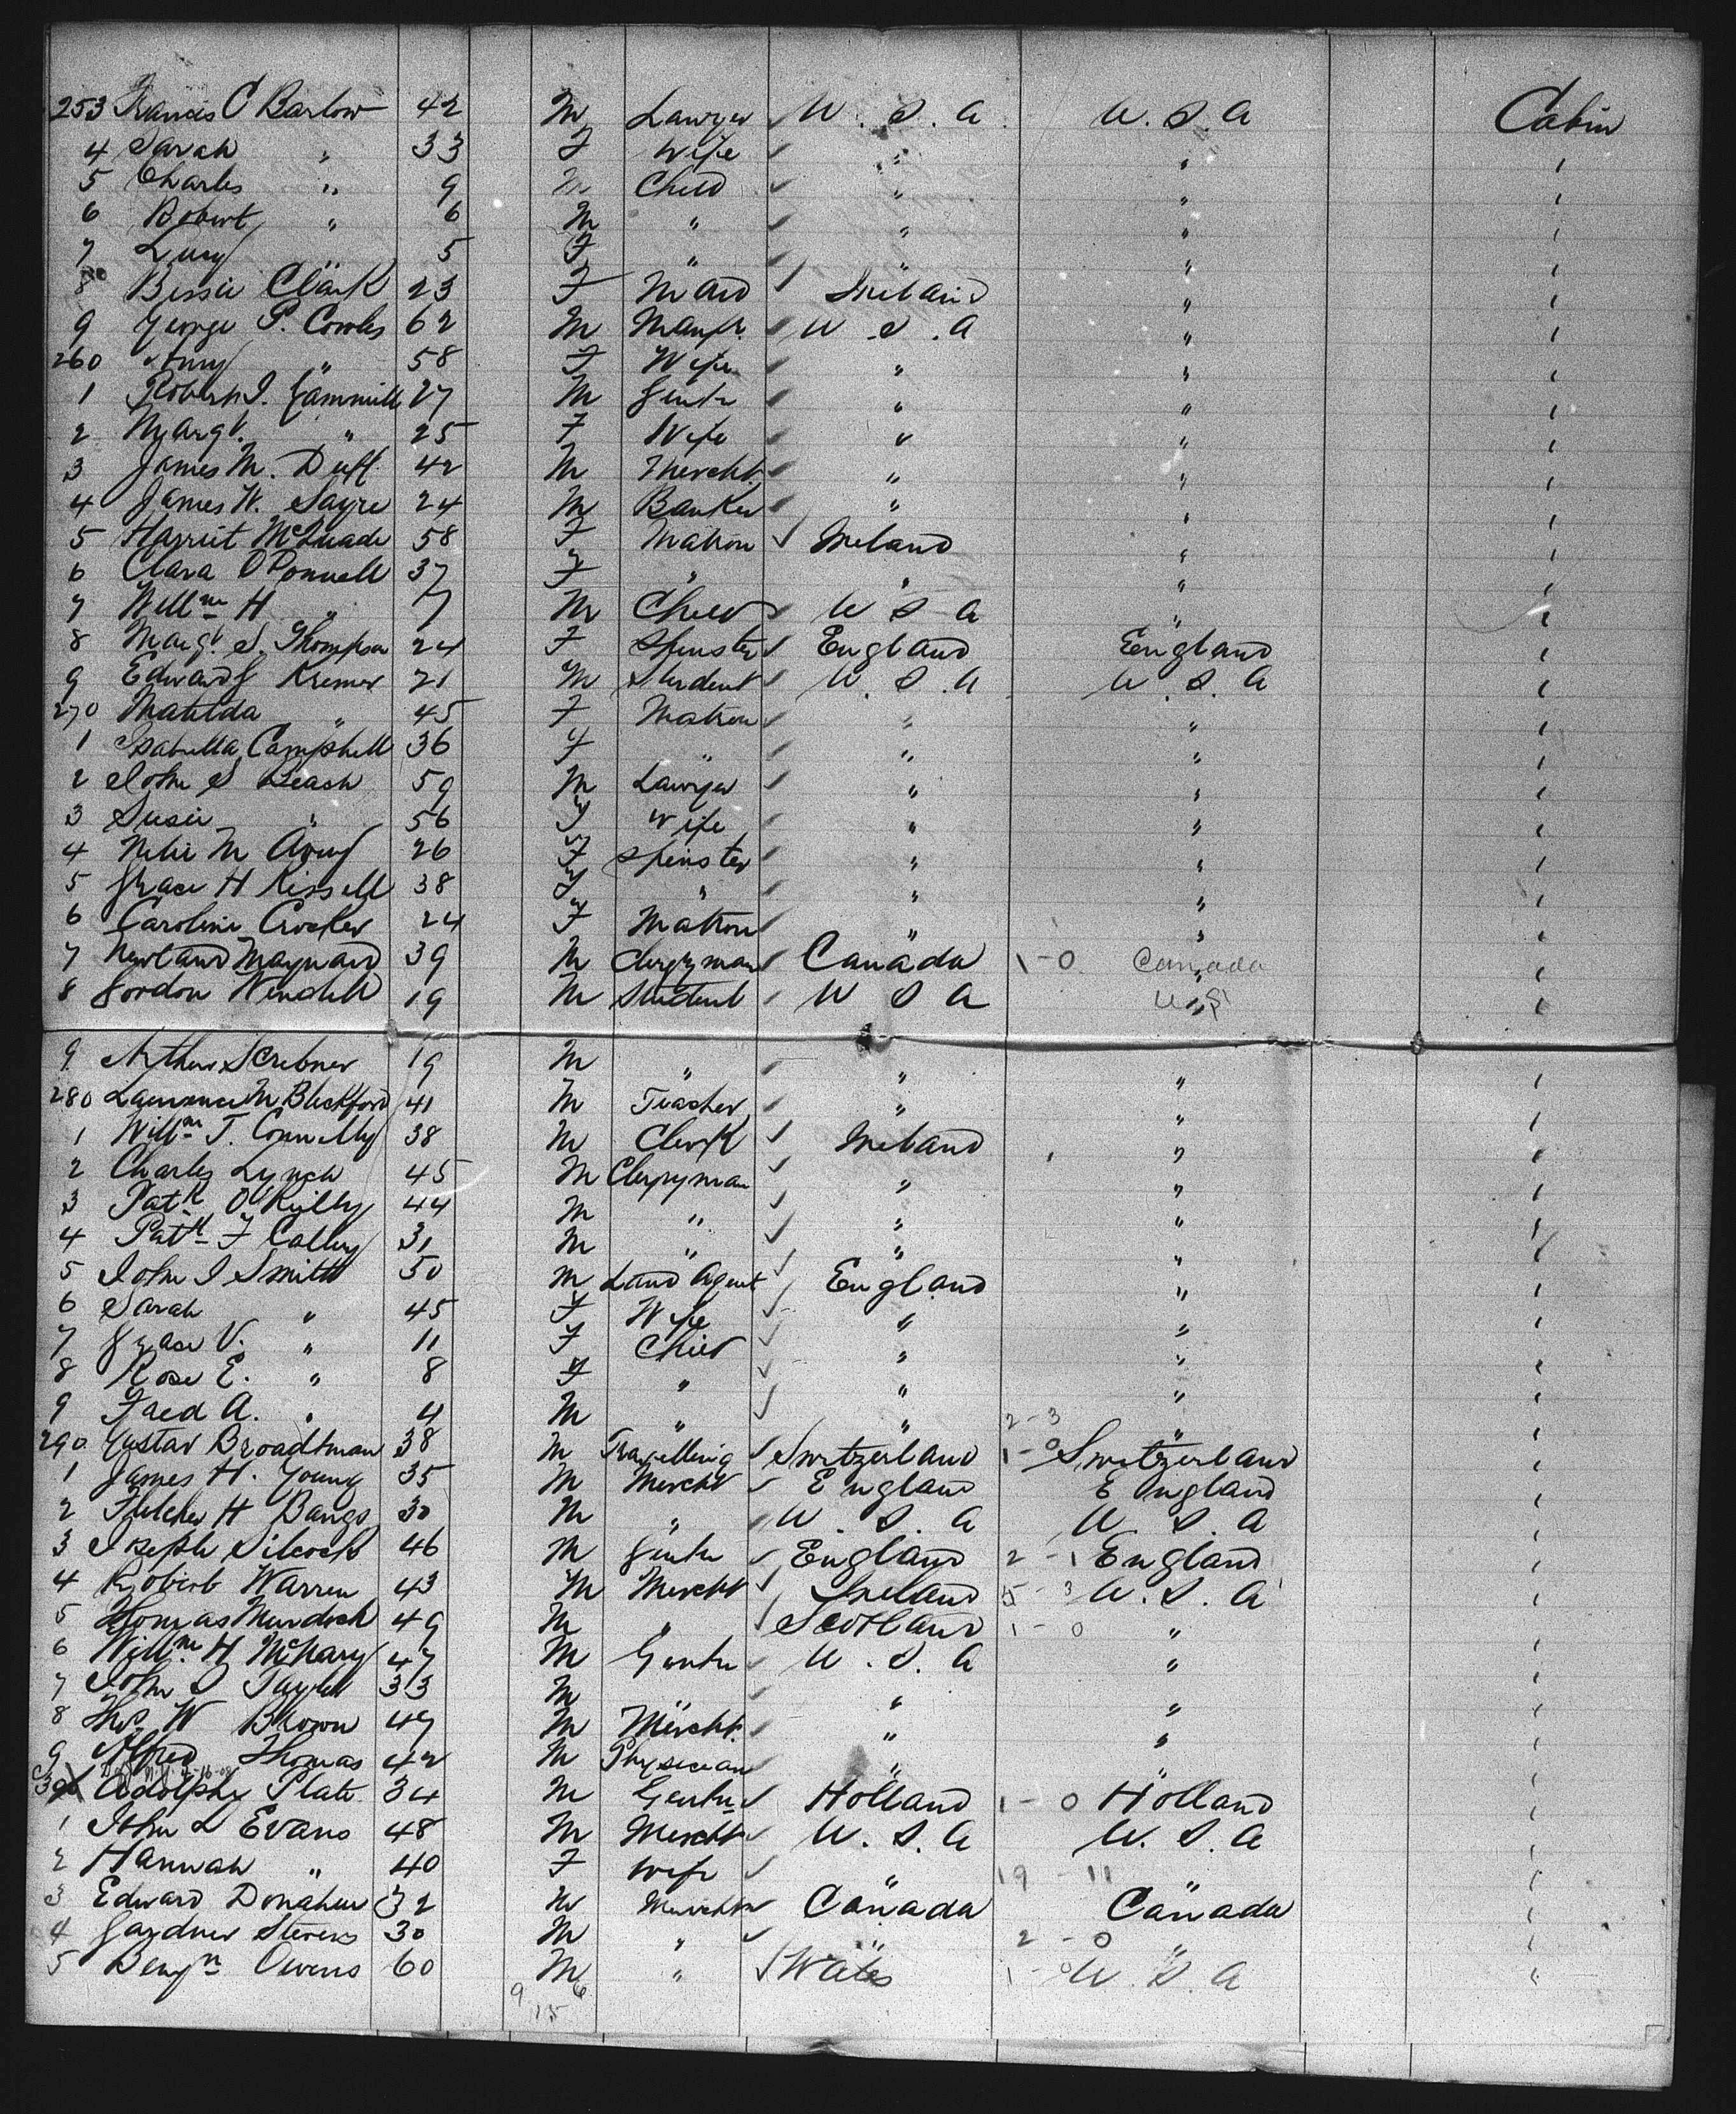 253 Francis C Barlow 42 M Lawyer U. S. A U. S. A Cabin
4 Sarah " 33 F Wife " " "
5 Charles " 9 M Child " " "
6 Robert " 6 M " " " "
7 Lucy " 5 F " " " "
8 Bessie Clark 23 F Maid Ireland " "
9 George P. Cowles 62 M Manfr. U. S. A " "
260 Amy " 58 F Wife " " "
1 Robert I. Gammill 27 M Gentn " " "
2 Margt. " 25 F Wife " " "
3 James M. Duff 42 M Mercht. " " "
4 James W. Sayre 24 M Banker " " "
5 Harriet McQuade 58 F Matron Ireland " "
6 Clara O'Donnell 37 F " " " "
7 Willm H " 7 M Child U S A " "
8 Margt. S. Thompson 24 F Spinster England England "
9 Edward J Kremer 21 M Student U. S. A U. S. A "
270 Matilda " 45 F Matron " " "
1 Isabella Campbell 36 F " " " "
2 John S Leash 59 M Lawyer " " "
3 Susie " 56 F Wife " " "
4 Nelie M Avery 26 F Spinster " " "
5 Grace H Kissell 38 F " " " "
6 Caroline Crocker 24 F Matron " " "
7 Newland Maynard 39 M Clergyman Canada 1-0 Canada "
8 Gordon Wendell 19 M Student U S A U S "
9 Arthur Scribner 19 M " " " "
280 Laurence M Blackford 41 M Teacher " " "
1 Willm T. Connelly 38 M Clerk Ireland " "
2 Charles Lynch 45 M Clergyman " " "
3 Patk O'Reilly 44 M " " " "
4 Patk F Colley 31 M " " " "
5 John I Smith 50 M Land Agent England " "
6 Sarah " 45 F Wife " " "
7 Grace V. " 11 F Child " " "
8 Rose E. " 8 F " " " "
9 Fred A. " 4 M " " 2-3 " "
290 Gustav Broadtman 38 M Travelling Switzerland 1-0 Switzerland "
1 James H. Young 35 M Mercht England England "
2 Fletcher H Bangs 30 M " U. S. A U. S. A "
3 Joseph Silcock 46 M Gentn England 2-1 England "
4 Robert Warren 43 M Mercht Ireland 5-3 U. S. A "
5 Thomas Murdoch 49 M " Scotland 1-0 " "
6 Willm H 47 M Gentn U. S. A " "
7 John S 33 M " " " "
8 Thos W Brown 49 M Mercht. " " "
9 Alfred Thomas 42 M Physician " " "
300 Adolphe Plate 34 M Gentn Holland 1-0 Holland "
1 John L Evans 48 M Mercht U. S. A U. S. A "
2 Hannah " 40 F Wife " 19-11 " "
3 Edward Donahue 32 M Mercht Canada Canada "
4 Gardner Stevens 30 M " " 2-0 " "
5 Benjn Owens 60 M " Wales 1-0 U. S. A "
9 6
15